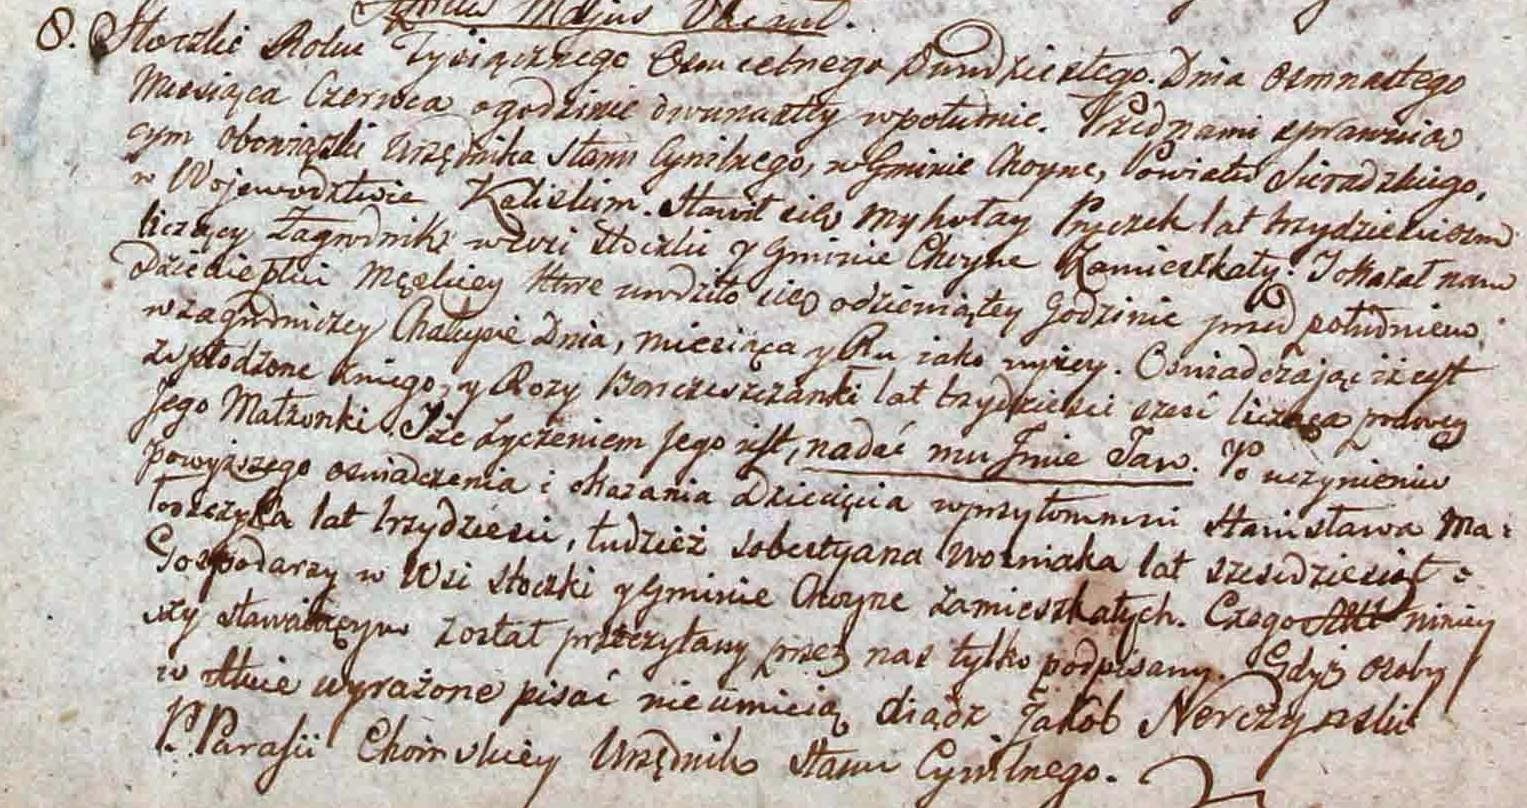 8. Stoczki Roku Tysiącznego Osmsetnego Dwudziestego. Dnia Osmnastego
Miesiąca Czerwca o godzinie dwunastey w południe. Przed nami sprawuia
cym obowiązki Urzędnika Stanu Cywilnego, w Gminie Choyne, Powiatu Sieradzkiego,
w Wojewodztwie Kaliskim. Stawił się Mykołay Pryczek lat trzydzieści osm
liczący Zagrodnik w wsi Stoczki y Gminie Choyne Zamieszkały. I okazał nam
Dziecie płci Męskiey które urodziło się o dziewiątey Godzinie przed południem,
w zagrodniczey Chałupie Dnia, miesiąca y Ru iako wyżey. Oswiadczaiąc iż iest
Zspłodzone z niego, y Rozy lat trzydzieści szesć licząca prawey
Jego Małżonki. I że życzeniem Jego iest, nadać mu Jmie Jan. Po uczynieniu
powyższego oswiadczenia i okazania Dziecięcia w przytomnosci Stanisława Ma:
toszczyka lat trzydziesci, tudzież Sobestyana Wozniaka lat szescdziesiąt:
Gospodarzy w Wsi Stoczki y Gminie Choyne zamieszkałych. Czego Akt niniey
szy stawaiącym został przeczytany przez nas tylko podpisany. Gdyż osoby
w Akcie wyrażone pisać nie umieią Xiądz Jakób Nerczynski
P. Parafii Choinskiey Urzędnik Stanu Cywilnego.